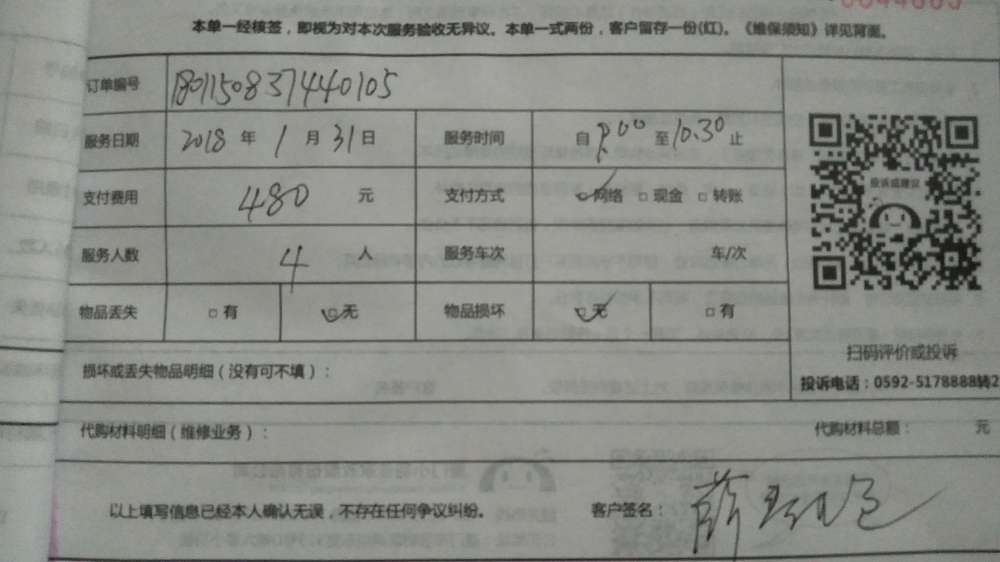 本单一经核签，即视为对本次服务验收无异议。本单一式两份，客户留存一份(红)。《维保须知》详见背面。
订单编号 1801150837440105
服务日期 2018 年 1 月 31 日 服务时间 自 8:00 至 10:30 止
支付费用 480 元 支付方式 网络 □ 现金 □ 转账
服务人数 4 人 服务车次 车/次
物品丢失 □ 有 □ 无 物品损坏 □ 无 □ 有
投诉或建议
扫码评价或投诉
损坏或丢失物品明细（没有可不填）：
投诉电话：0592-5178888转2
代购材料明细（维修业务）： 代购材料总额： 元
以上填写信息已经本人确认无误，不存在任何争议纠纷。 客户签名：